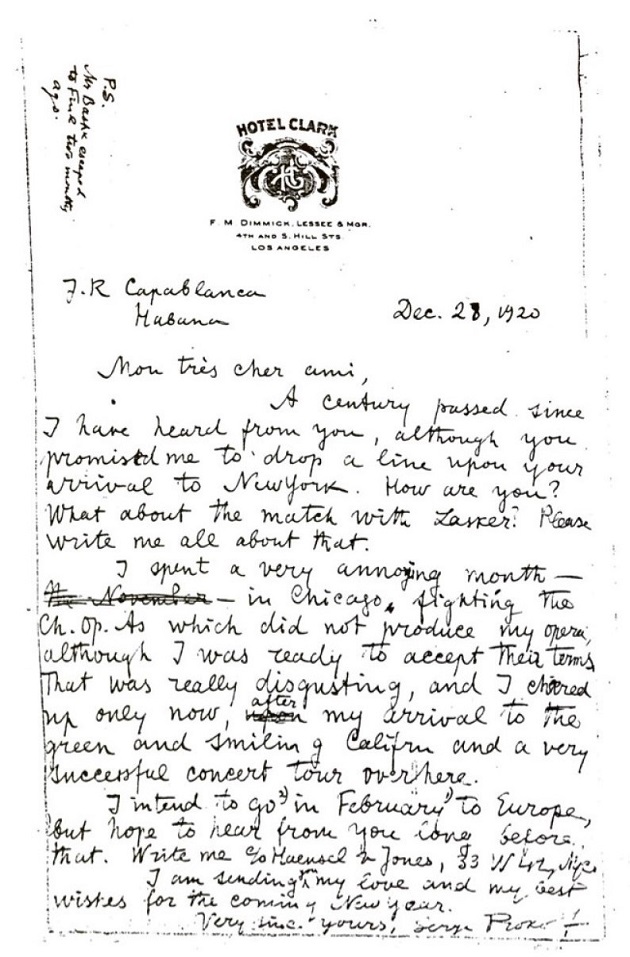 P.S.
Mr Bashk. escaped
to Finl. two months
ago.
HOTEL CLARK
F. M. DIMMICK, LESSEE & MGR.
4TH AND S. HILL STS.
LOS ANGELES
J.R Capablanca
Habana
Dec. 28, 1920
Mon très cher ami,
A century passed since
I have heard from you, although you
promised me to drop a line upon your
arrival to New York. How are you?
What about the match with Lasker? Please
write me all about that.
I spent a very annoying month —
the November — in Chicago, fighting the
Ch. Op. As which did not produce my opera,
although I was ready to accept their terms.
That was really disgusting, and I cheered
up only now, upon after my arrival to the
green and smiling Califrn and a very
successful concert tour over here.
I intend to go in February to Europe,
but hope to hear from you long before
that. Write me c/o Haensel & Jones, 33 W 42, NYC
I am sending my love and my best
wishes for the coming New Year.
Very sinc. yours, Serge Prokof